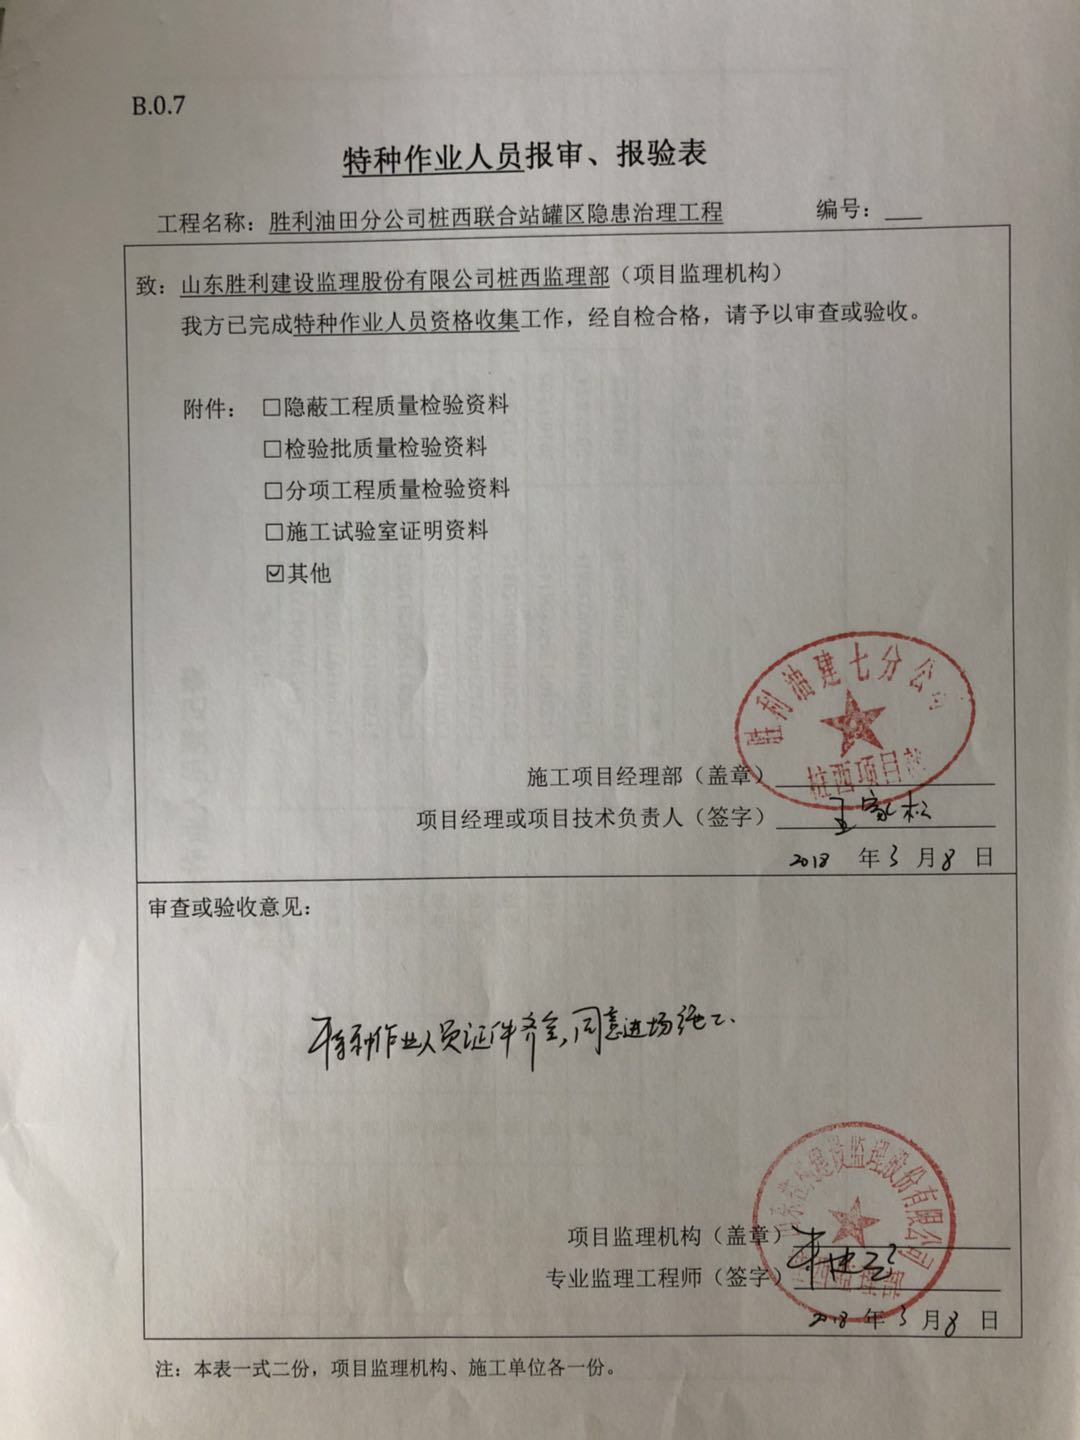 B.0.7
特种作业人员报审、报验表
工程名称：胜利油田分公司桩西联合站罐区隐患治理工程 编号：
致：山东胜利建设监理股份有限公司桩西监理部（项目监理机构）
我方已完成特种作业人员资格收集工作，经自检合格，请予以审查或验收。
附件： □隐蔽工程质量检验资料
□检验批质量检验资料
□分项工程质量检验资料
□施工试验室证明资料
☑其他
胜利油建七分公司
桩西项目部
施工项目经理部（盖章）
项目经理或项目技术负责人（签字） 王家松
2018 年 3 月 8 日
审查或验收意见：
特种作业人员证件齐全，同意进场施工.
山东胜利建设监理股份有限公司
项目监理机构（盖章）
专业监理工程师（签字）
2018 年 3 月 8 日
注：本表一式二份，项目监理机构、施工单位各一份。